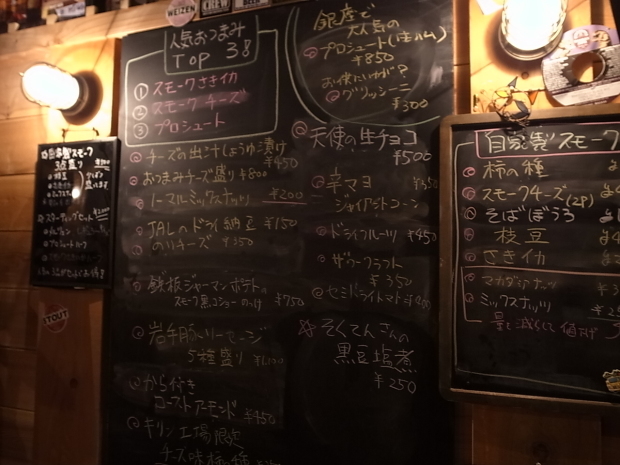 WEIZEN
CREW
人気おつまみ
TOP 3
① スモークさきイカ
② スモークチーズ
③ プロシュート
チーズの出汁しょうゆ漬け
¥450
おつまみチーズ盛り ¥800
ノーマルミックスナッツ ¥200
JALのドライ納豆 ¥150
のりチーズ ¥350
鉄板ジャーマンポテト
スモーク黒コショーのっけ ¥750
岩手豚ソーセージ
5種盛り ¥1,100
から付き
ローストアーモンド ¥450
キリン工場限定
チーズ味柿の種
銀座で
人気の
プロシュート(生ハム)
¥850
お供にいかが?
グリッシーニ
¥300
天使の生チョコ
¥500
辛マヨ
ジャイアントコーン
ドライフルーツ ¥450
ザワークラフト
¥350
セミドライトマト
そくてんさんの
黒豆塩煮
¥250
自家製スモーク
3点盛り
自家製スモーク
柿の種
スモークチーズ(2P)
そばぼうろ
枝豆
さきイカ
マカダミアナッツ
ミックスナッツ
量を減らして値下げ
STOUT